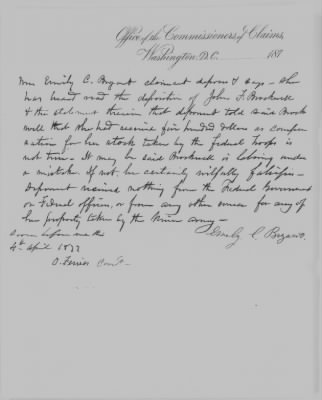 Office of the Commissioners of Claims,
Washington, D.C. 187
Mrs Emily C. Bryant claimant deposes & says - She
has heard read the deposition of John F. Brockwell
& the statement therein that deponent told said Brock
well that she had received five hundred dollars as compen
sation for her stock taken by the federal troops is
not true - It may be said Brockwell is laboring under
a mistake. If not, he certainly wilfully falsifies -
Deponent received nothing from the Federal Government
or Federal officers, or from any other source for any of
her property taken by the Union army -
Emily C. Bryant.
Sworn before me this
4th April 1877
O. Ferriss Comr -